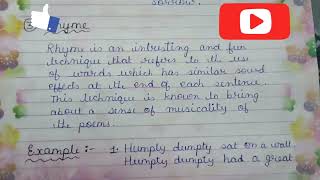 sorrow.
③ Rhyme
Rhyme is an intristing and fun
technique that refers to the use
of wards which has similar sound
effects at the end of each sentence..
This technique is known to bring
about a sense of musicality of
the poems.
Example:- 1. Humply dumpty sat on a wall.
Humply dumpty had a great